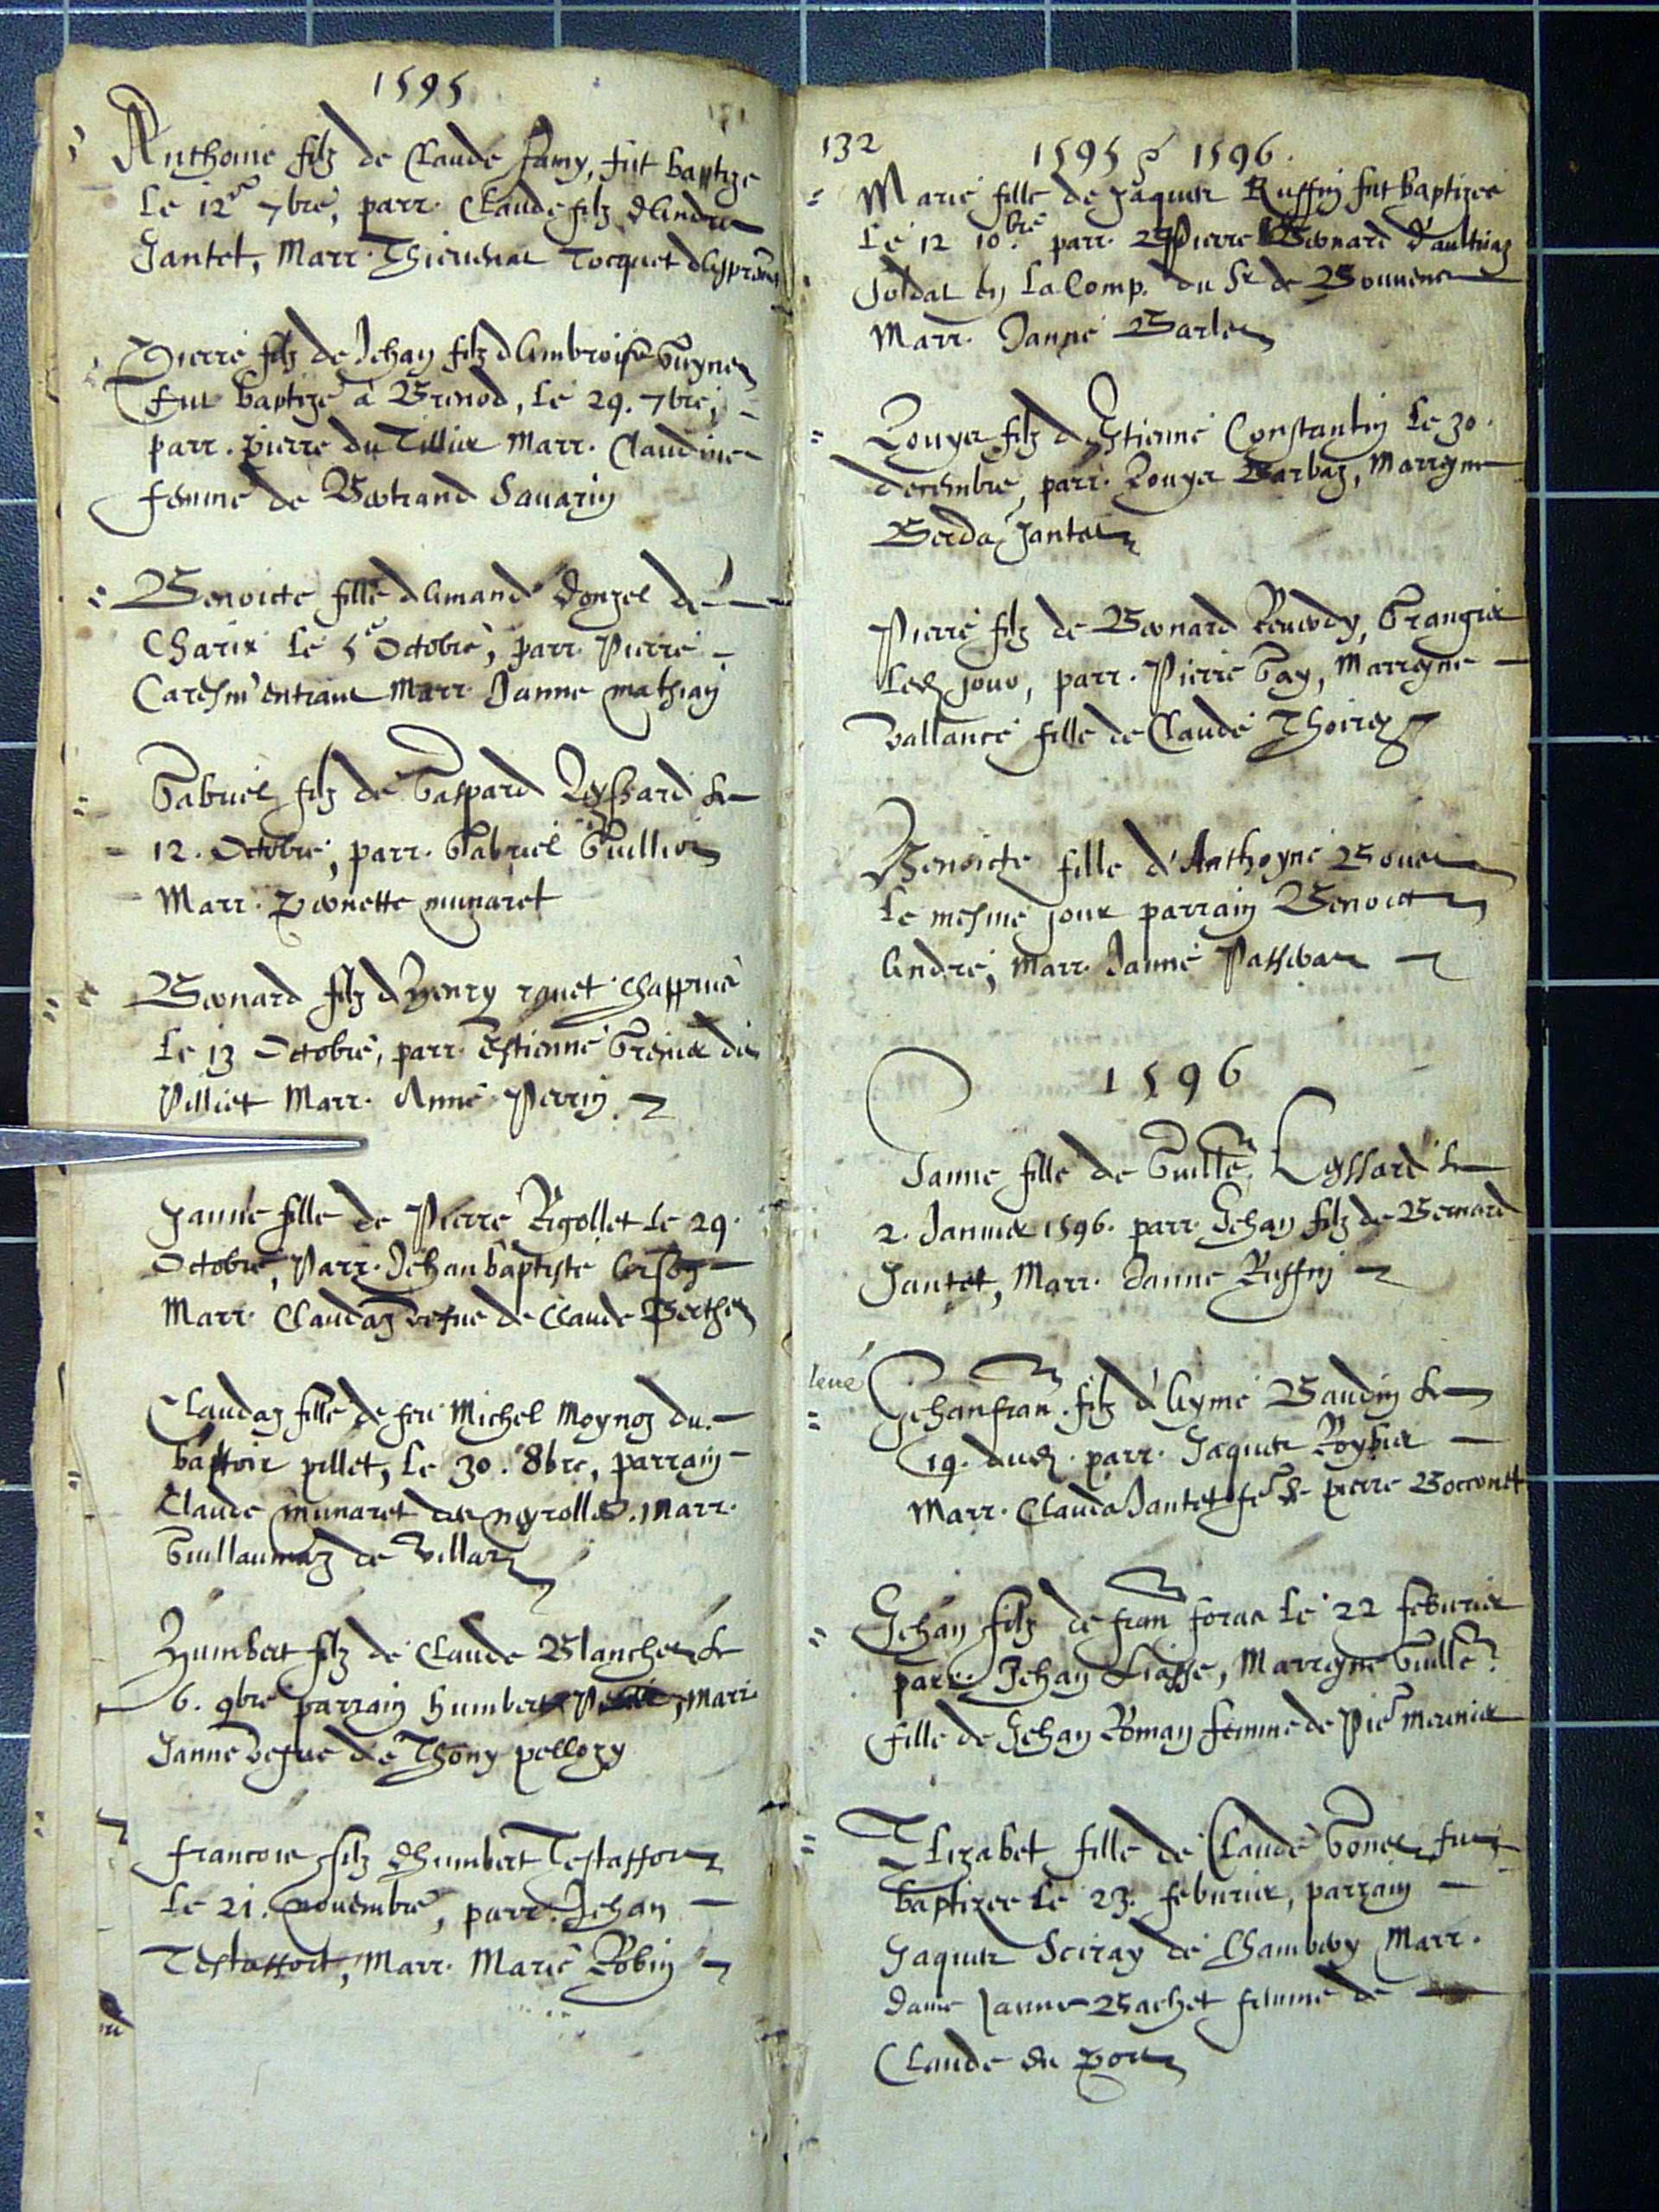 1595
Anthoine filz de Claude famy, fut baptize
Le 12e 7bre, parr. Claude filz dAndre
Jantet, Marr. Tocquet
Pierre filz de Jehan filz dAmbroise Guynet
fut baptizé a Brenod, Le 29. 7bre,
parr. pierre du Tillier Marr. Claudine
femme de Bertrand Savarin
Benoicte fille dAmand Donzel de
Charix Le 5e Octobre, parr. Pierre
Caresm'entrant Marr. Janne mathian
Gabriel filz de Gaspard Leyssard Le
12. Octobre, parr. Gabriel Guillion
Marr. Pernette munaret
Bernard filz dHenry ravet Chappuis
Le 13 Octobre, parr. Estienne Grenier dit
Pilliet Marr. Anne Perrin
Janne fille de Pierre Rigollet Le 29.
Octobre, Parr. Jehan baptiste
Marr. Claudaz vefue de Claude Berthet
Claudaz fille de feu Michel Moynoz du
pillet, Le 30. 8bre, parrain
Claude munaret des neyrolles. Marr.
Guillaumaz de Villar
Humbert filz de Claude Blanchet Le
6. 9bre parrain humbert Marr.
Janne vefue de Thony pellozy
francois filz dhumbert Testaffort
Le 21. Novembre, parr. Jehan
Testaffort, Marr. Marie Robin
132 1595 & 1596.
Marie fille de Jaques Ruffin fut baptizee
Le 12 10bre parr. Pierre Bernard
soldat en La Comp. du Sr de Bouvens
Marr. Janne Barlet
Louys filz dEstienne Constantin Le 30.
decembre, parr. Louys Barbaz, Marreyne
Berda Jantet
Pierre filz de Bernard Reverdy, Grangier
Led jour, parr. Pierre Gay, Marreyne
Vallance fille de Claude Thoirez
Benoicte fille d'Anthoyne Bouet
Le mesme jour parrain Benoict
André, Marr. Janne Passerat
1596
Janne fille de Guille Leyssard Le
2. Janvier 1596. parr. Jehan filz de Bernard
Jantet, Marr. Janne Ruffin
levé
Jehanfran. filz d'Aymé Baudin Le
19. dud. parr. Jaques Roybier
Marr. Clauda Jantet fe de pierre Bocconet
Jehan filz de fran foran Le 22 feburier
parr. Jehan Liasse, Marreyne Guille
fille de Jehan Roman femme de Pie meunier
Elizabet fille de Claude Gonet fut
baptizee Le 23. feburier, parrain
Jaques Sciray de Chambery Marr.
Dame Janne Bachet femme de
Claude du Port